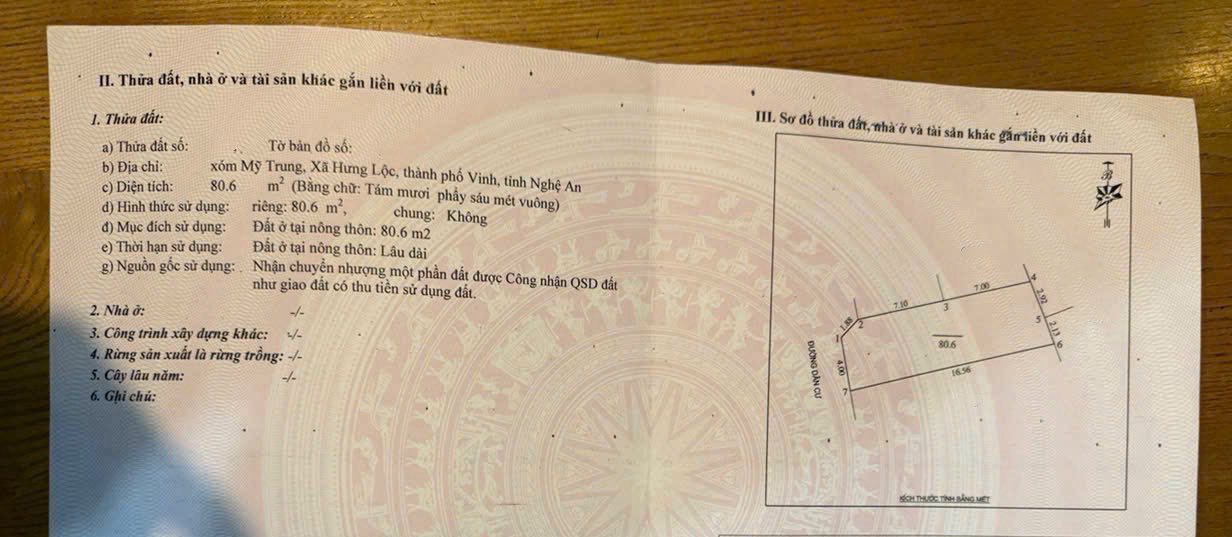 II. Thửa đất, nhà ở và tài sản khác gắn liền với đất
1. Thửa đất:
a) Thửa đất số: Tờ bản đồ số:
b) Địa chỉ: xóm Mỹ Trung, Xã Hưng Lộc, thành phố Vinh, tỉnh Nghệ An
c) Diện tích: 80.6 m² (Bằng chữ: Tám mươi phẩy sáu mét vuông)
d) Hình thức sử dụng: riêng: 80.6 m², chung: Không
đ) Mục đích sử dụng: Đất ở tại nông thôn: 80.6 m2
e) Thời hạn sử dụng: Đất ở tại nông thôn: Lâu dài
g) Nguồn gốc sử dụng: Nhận chuyển nhượng một phần đất được Công nhận QSD đất
như giao đất có thu tiền sử dụng đất.
2. Nhà ở: -/-
3. Công trình xây dựng khác: -/-
4. Rừng sản xuất là rừng trồng: -/-
5. Cây lâu năm: -/-
6. Ghi chú:
III. Sơ đồ thửa đất, nhà ở và tài sản khác gắn liền với đất
B
4
7.00
2.92
7.10
3
5
1.88
2
2.13
1
80.6
6
ĐƯỜNG DÂN CƯ
4.00
16.56
7
KÍCH THƯỚC TÍNH BẰNG MÉT